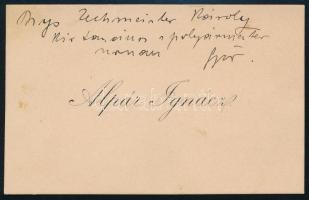 Ngs Zechmeister Károly
Kir tanácsos polgármester
urnak
Győr.
Alpár Ignácz